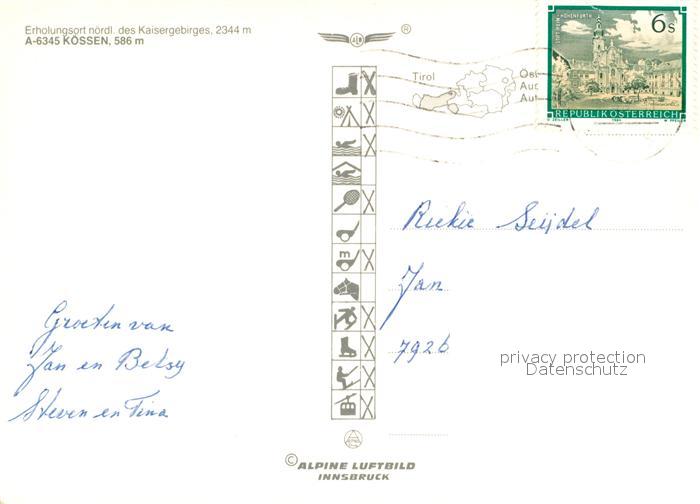 Erholungsort nördl. des Kaisergebirges, 2344 m
A-6345 KÖSSEN, 586 m
®
Tirol
STIFT REIN-HOHENFURTH
6s
REPUBLIK ÖSTERREICH
O. ZEILER 1984 W. PFEILER
m
Riekie Seijdel
Jan
7926
privacy protection
Datenschutz
Groeten van
Jan en Betsy
Steven en Tina
© ALPINE LUFTBILD
INNSBRUCK